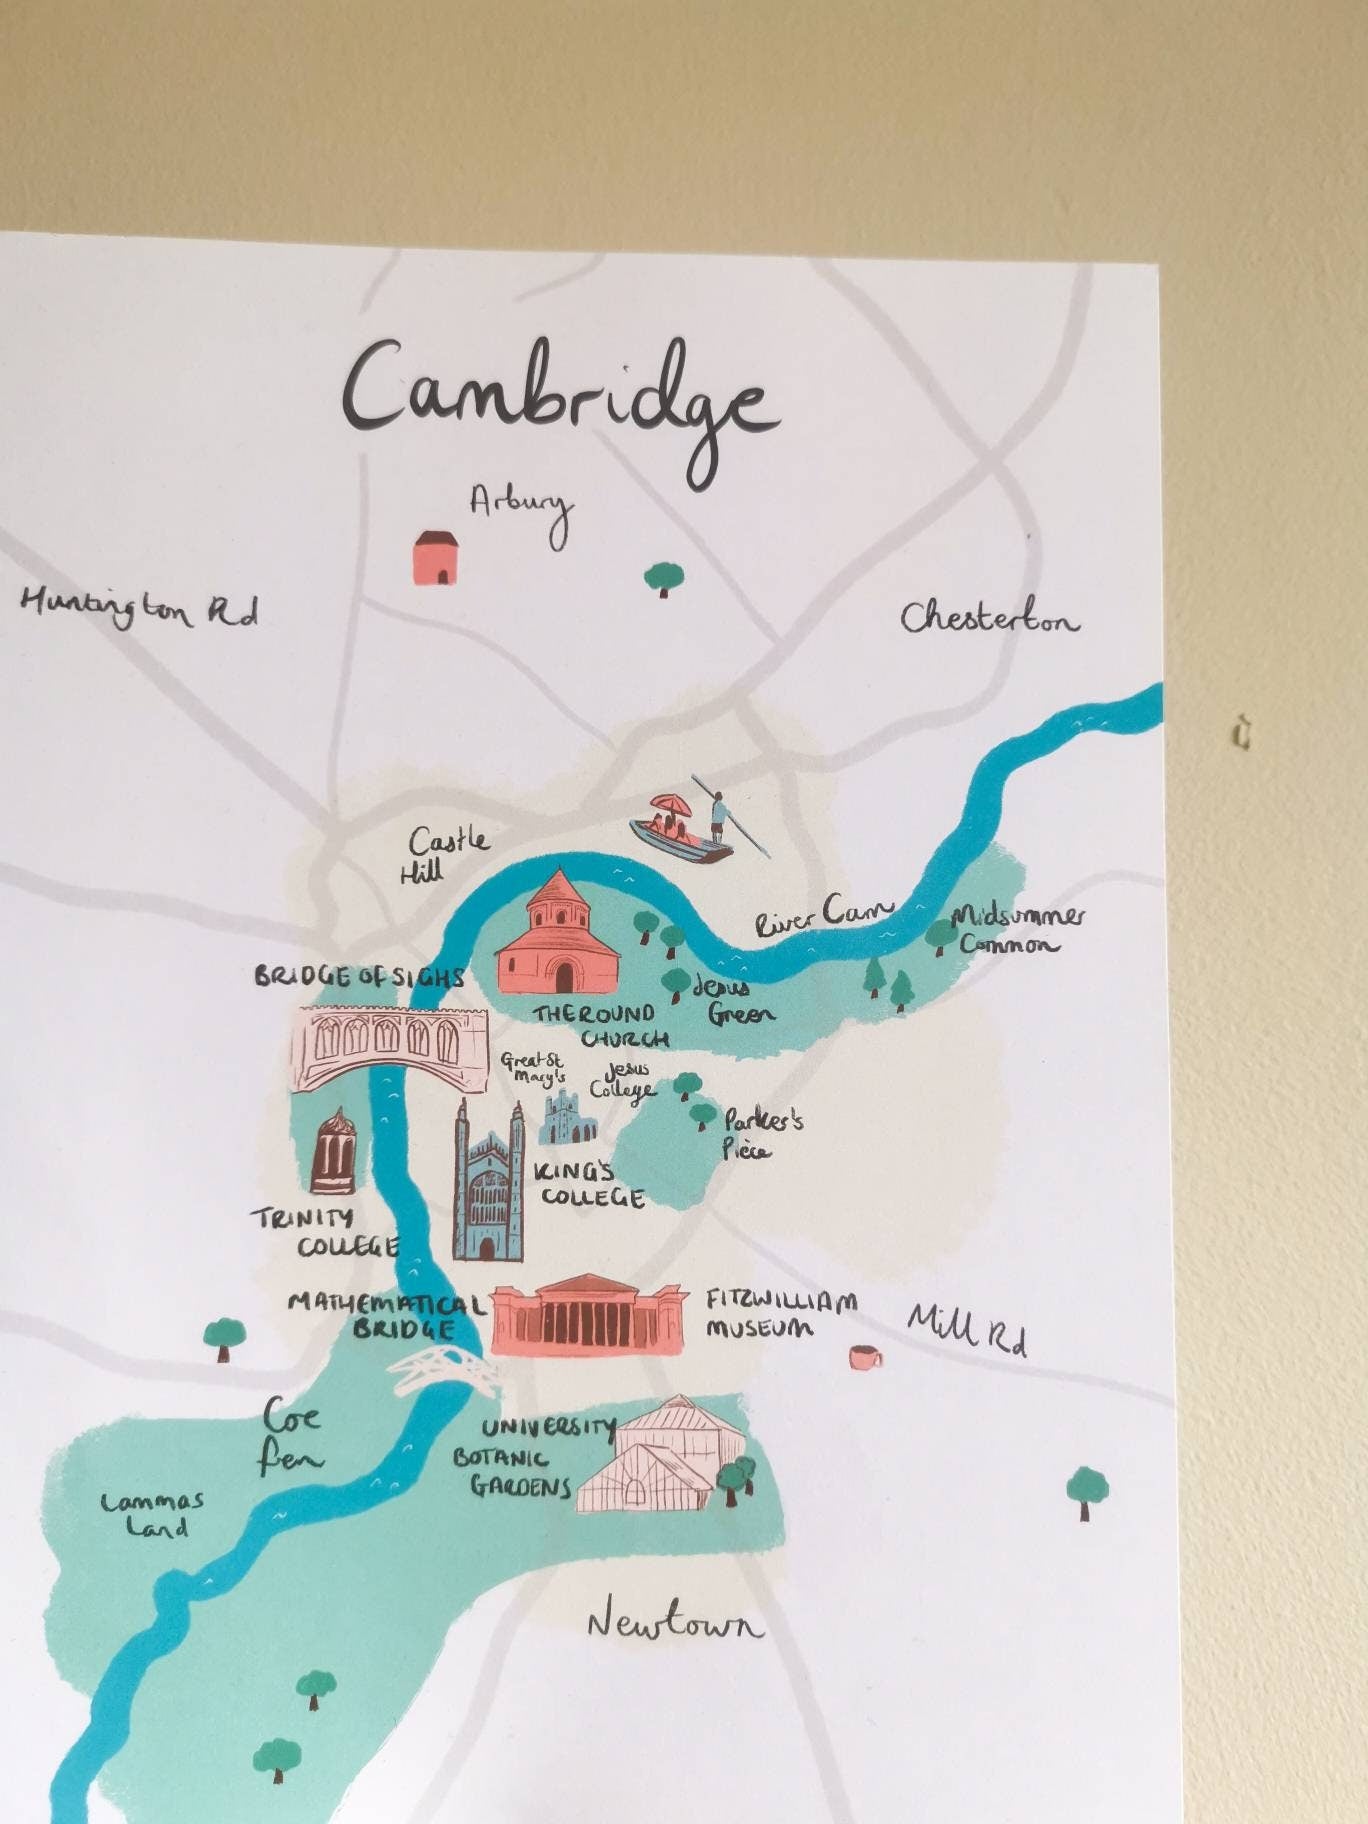 Cambridge
Arbury
Huntington Rd
Chesterton
Castle
Hill
River Cam
Midsummer
Common
BRIDGE OF SIGHS
Jesus
Green
THE ROUND
CHURCH
Great St
Mary's
Jesus
College
Parker's
Piece
KING'S
COLLEGE
TRINITY
COLLEGE
MATHEMATICAL
BRIDGE
FITZWILLIAM
MUSEUM
Mill Rd
Coe
fen
UNIVERSITY
BOTANIC
GARDENS
Lammas
Land
Newtown